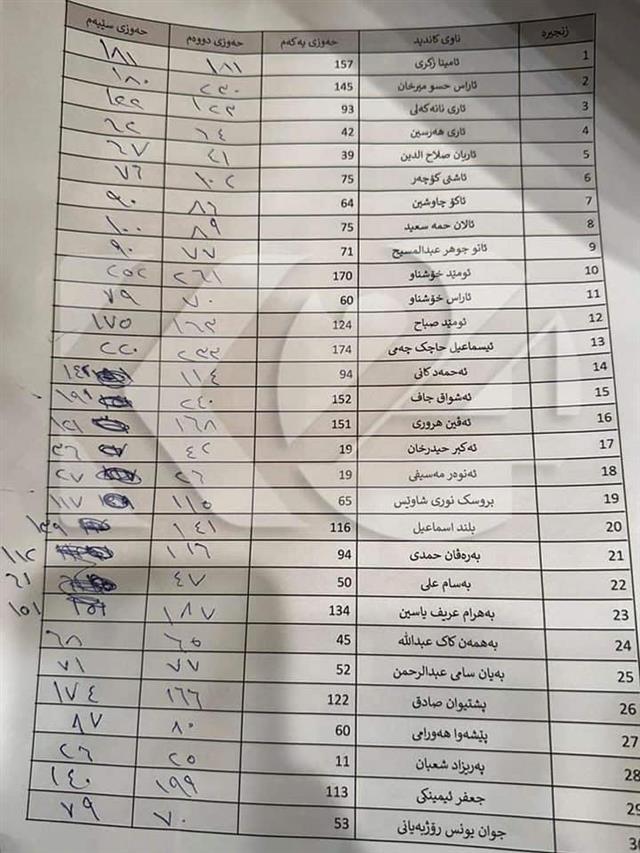 زنجیرە ناوی کاندید حەوزی یەکەم حەوزی دووەم حەوزی سێیەم
1 ئامینا زکری 157 ١٨١ ١٨١
2 ئاراس حسو میرخان 145 ٢٣٠ ١٨٠
3 ئاری نانەکەلی 93 ١٢٣ ١٢٢
4 ئاری هەرسین 42 ٦٤ ٦٢
5 ئاریان صلاح الدین 39 ٤١ ٦٧
6 ئاشتی کۆچەر 75 ١٠٢ ٧٦
7 ئاکۆ چاوشین 64 ٨٦ ٩٠
8 ئالان حمە سعید 75 ٨٩ ١٠٠
9 ئانو جوهر عبدالمسیح 71 ٧٧ ٩٠
10 ئومێد خۆشناو 170 ٢٦١ ٢٥٢
11 ئاراس خۆشناو 60 ٧٠ ٧٩
12 ئومێد صباح 124 ١٦٣ ١٧٥
13 ئیسماعیل حاجک چەمی 174 ٢٣٣ ٢٢٠
14 ئەحمەد کانی 94 ١١٤
15 ئەشواق جاف 152 ٢٤٠
16 ئەڤین هروری 151 ١٦٨
17 ئەکبر حیدرخان 19 ٤٢ ٣٦
18 ئەنوەر مەسیفی 19 ٢٦ ٢٧
19 بروسک نوری شاوێس 65 ١١٥ ١١٧
20 بلند اسماعیل 116 ١٤١
21 بەرەڤان حمدی 94 ١١٦ ١١٢
22 بەسام علی 50 ٤٧ ٦١
23 بەهرام عریف یاسین 134 ١٨٧ ١٥١
24 بەهمەن کاک عبدالله 45 ٦٥ ٦٨
25 بەیان سامی عبدالرحمن 52 ٧٧ ٧١
26 پشتیوان صادق 122 ١٦٦ ١٧٤
27 پێشەوا هەورامی 60 ٨٠ ٨٧
28 پەریزاد شعبان 11 ٢٥ ٢٦
29 جعفر ئیمینکی 113 ١٩٩ ١٤٠
30 جوان یونس رۆژبەیانی 53 ٧٠ ٧٩
K24